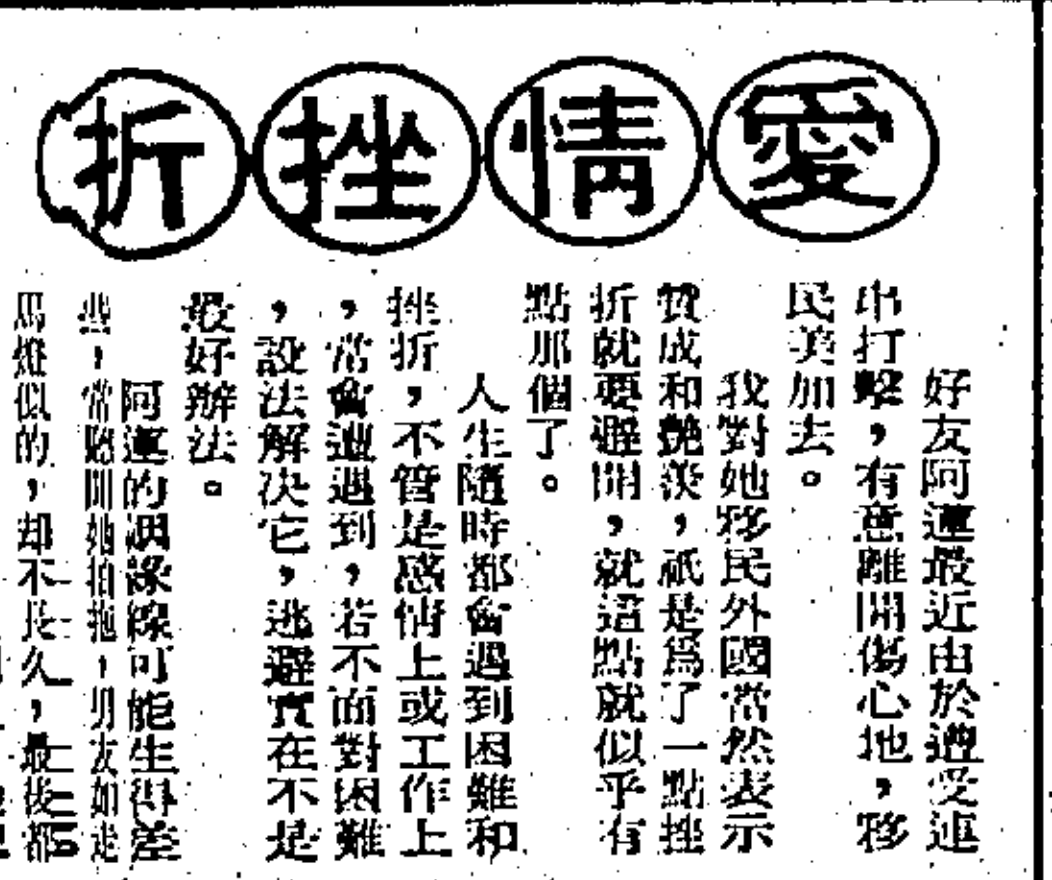 愛情挫折
好友阿蓮最近由於遭受連
串打擊,有意離開傷心地,移
民美加去。
我對她移民外國當然表示
贊成和艷羨,祇是爲了一點挫
折就要避開,就這點就似乎有
點那個了。
人生隨時都會遇到困難和
挫折,不管是感情上或工作上
,常會遭遇到,若不面對困難
,設法解決它,逃避實在不是
最好辦法。
阿蓮的姻緣線可能生得差
些,常聽聞她拍拖,男友如走
馬燈似的,却不長久,最後都